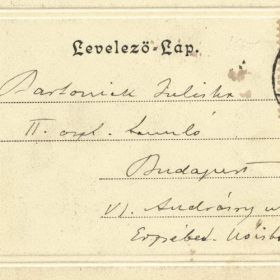 Levelező-Lap.
Bartoniek Juliska
II. oszt. tanuló
Budapest
VI. Andrássy u
Erzsébet-Nőisk